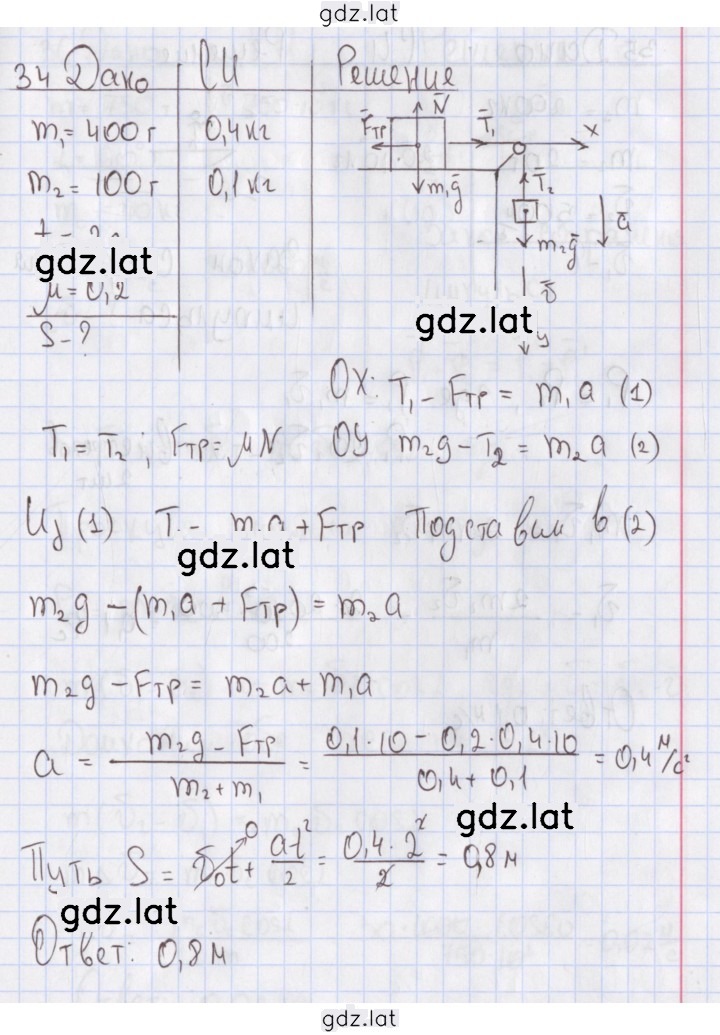 gdz.lat
34 Дано СИ Решение
m₁ = 400 г 0,4 кг
m₂ = 100 г 0,1 кг
N̄
F̄тр T̄₁ x
m₁ḡ T̄₂
m₂ḡ ā
gdz.lat
μ = 0,2
S - ?
ῡ
gdz.lat
y
OX: T₁ - Fтр = m₁a (1)
T₁ = T₂; Fтр = μN OY m₂g - T₂ = m₂a (2)
Из (1) + Fтр Подставим в (2)
gdz.lat
m₂g - (m₁a + Fтр) = m₂a
m₂g - Fтр = m₂a + m₁a
a = (m₂g - Fтр)/(m₂ + m₁) = (0,1·10 - 0,2·0,4·10)/(0,4 + 0,1) = 0,4 м/с²
gdz.lat
Путь S = υ₀t 0 + at²/2 = 0,4·2²/2 = 0,8 м
gdz.lat
Ответ: 0,8 м
gdz.lat